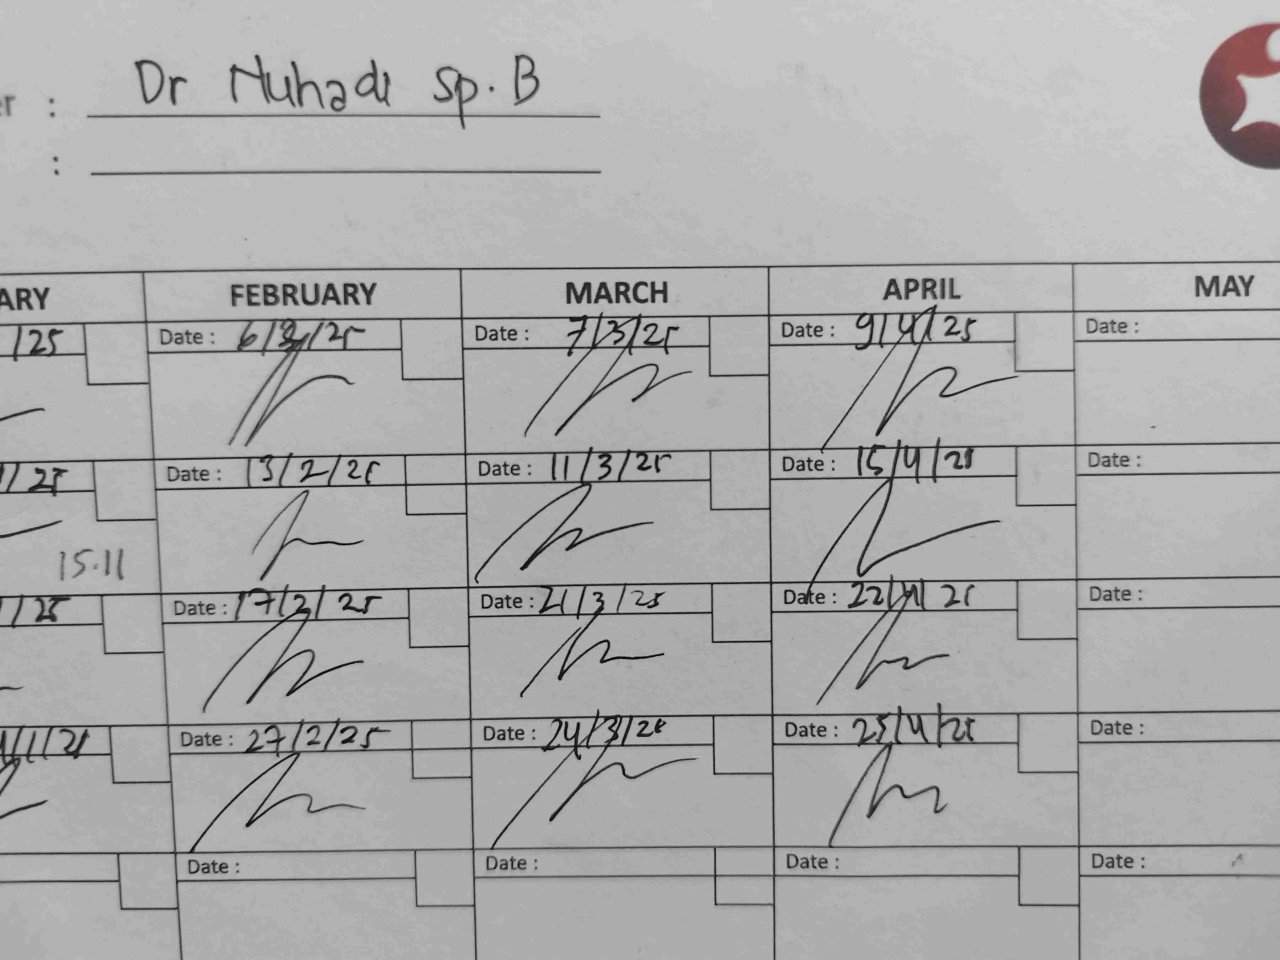 er : Dr Nuhadi Sp.B
:
ARY FEBRUARY MARCH APRIL MAY
/25 Date : 6/2/25 Date : 7/3/25 Date : 9/4/25 Date :
/25 Date : 13/2/25 Date : 11/3/25 Date : 15/4/25 Date :
15.11
/25 Date : 17/2/25 Date : 21/3/25 Date : 22/4/25 Date :
/1/25 Date : 27/2/25 Date : 24/3/25 Date : 25/4/25 Date :
Date : Date : Date : Date :